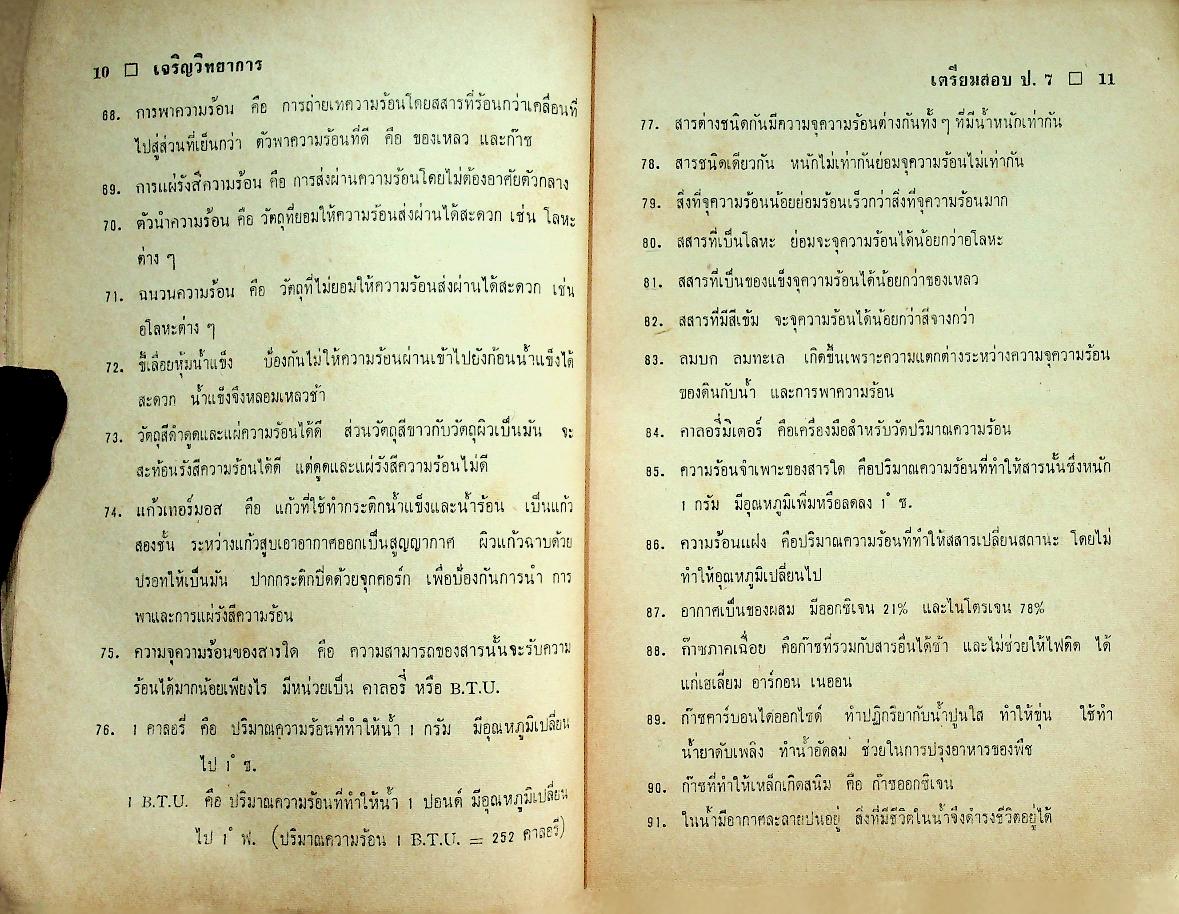 10 □ เจริญวิทยาการ
68. การพาความร้อน คือ การถ่ายเทความร้อนโดยสสารที่ร้อนกว่าเคลื่อนที่
ไปสู่ส่วนที่เย็นกว่า ตัวพาความร้อนที่ดี คือ ของเหลว และก๊าซ
69. การแผ่รังสีความร้อน คือ การส่งผ่านความร้อนโดยไม่ต้องอาศัยตัวกลาง
70. ตัวนำความร้อน คือ วัตถุที่ยอมให้ความร้อนส่งผ่านได้สะดวก เช่น โลหะ
ต่าง ๆ
71. ฉนวนความร้อน คือ วัตถุที่ไม่ยอมให้ความร้อนส่งผ่านได้สะดวก เช่น
อโลหะต่าง ๆ
72. ขี้เลื่อยหุ้มน้ำแข็ง ป้องกันไม่ให้ความร้อนผ่านเข้าไปยังก้อนน้ำแข็งได้
สะดวก น้ำแข็งจึงหลอมเหลวช้า
73. วัตถุสีดำดูดและแผ่ความร้อนได้ดี ส่วนวัตถุสีขาวกับวัตถุผิวเป็นมัน จะ
สะท้อนรังสีความร้อนได้ดี แต่ดูดและแผ่รังสีความร้อนไม่ดี
74. แก้วเทอร์มอส คือ แก้วที่ใช้ทำกระติกน้ำแข็งและน้ำร้อน เป็นแก้ว
สองชั้น ระหว่างแก้วสูบเอาอากาศออกเป็นสูญญากาศ ผิวแก้วฉาบด้วย
ปรอทให้เป็นมัน ปากกระติกปิดด้วยจุกคอร์ก เพื่อป้องกันการนำ การ
พาและการแผ่รังสีความร้อน
75. ความจุความร้อนของสารใด คือ ความสามารถของสารนั้นจะรับความ
ร้อนได้มากน้อยเพียงไร มีหน่วยเป็น คาลอรี่ หรือ B.T.U.
76. 1 คาลอรี่ คือ ปริมาณความร้อนที่ทำให้น้ำ 1 กรัม มีอุณหภูมิเปลี่ยน
ไป 1° ซ.
1 B.T.U. คือ ปริมาณความร้อนที่ทำให้น้ำ 1 ปอนด์ มีอุณหภูมิเปลี่ยน
ไป 1° ฟ. (ปริมาณความร้อน 1 B.T.U. = 252 คาลอรี่)
เตรียมสอบ ป. 7 □ 11
77. สารต่างชนิดกันมีความจุความร้อนต่างกันทั้ง ๆ ที่มีน้ำหนักเท่ากัน
78. สารชนิดเดียวกัน หนักไม่เท่ากันย่อมจุความร้อนไม่เท่ากัน
79. สิ่งที่จุความร้อนน้อยย่อมร้อนเร็วกว่าสิ่งที่จุความร้อนมาก
80. สสารที่เป็นโลหะ ย่อมจะจุความร้อนได้น้อยกว่าอโลหะ
81. สสารที่เป็นของแข็งจุความร้อนได้น้อยกว่าของเหลว
82. สสารที่มีสีเข้ม จะจุความร้อนได้น้อยกว่าสีจางกว่า
83. ลมบก ลมทะเล เกิดขึ้นเพราะความแตกต่างระหว่างความจุความร้อน
ของดินกับน้ำ และการพาความร้อน
84. คาลอรี่มิเตอร์ คือเครื่องมือสำหรับวัดปริมาณความร้อน
85. ความร้อนจำเพาะของสารใด คือปริมาณความร้อนที่ทำให้สารนั้นซึ่งหนัก
1 กรัม มีอุณหภูมิเพิ่มหรือลดลง 1° ซ.
86. ความร้อนแฝง คือปริมาณความร้อนที่ทำให้สสารเปลี่ยนสถานะ โดยไม่
ทำให้อุณหภูมิเปลี่ยนไป
87. อากาศเป็นของผสม มีออกซิเจน 21% และไนโตรเจน 78%
88. ก๊าซภาคเฉื่อย คือก๊าซที่รวมกับสารอื่นได้ช้า และไม่ช่วยให้ไฟติด ได้
แก่เฮเลี่ยม อาร์กอน เนออน
89. ก๊าซคาร์บอนไดออกไซด์ ทำปฏิกริยากับน้ำปูนใส ทำให้ขุ่น ใช้ทำ
น้ำยาดับเพลิง ทำน้ำอัดลม ช่วยในการปรุงอาหารของพืช
90. ก๊าซที่ทำให้เหล็กเกิดสนิม คือ ก๊าซออกซิเจน
91. ในน้ำมีอากาศละลายปนอยู่ สิ่งที่มีชีวิตในน้ำจึงดำรงชีวิตอยู่ได้